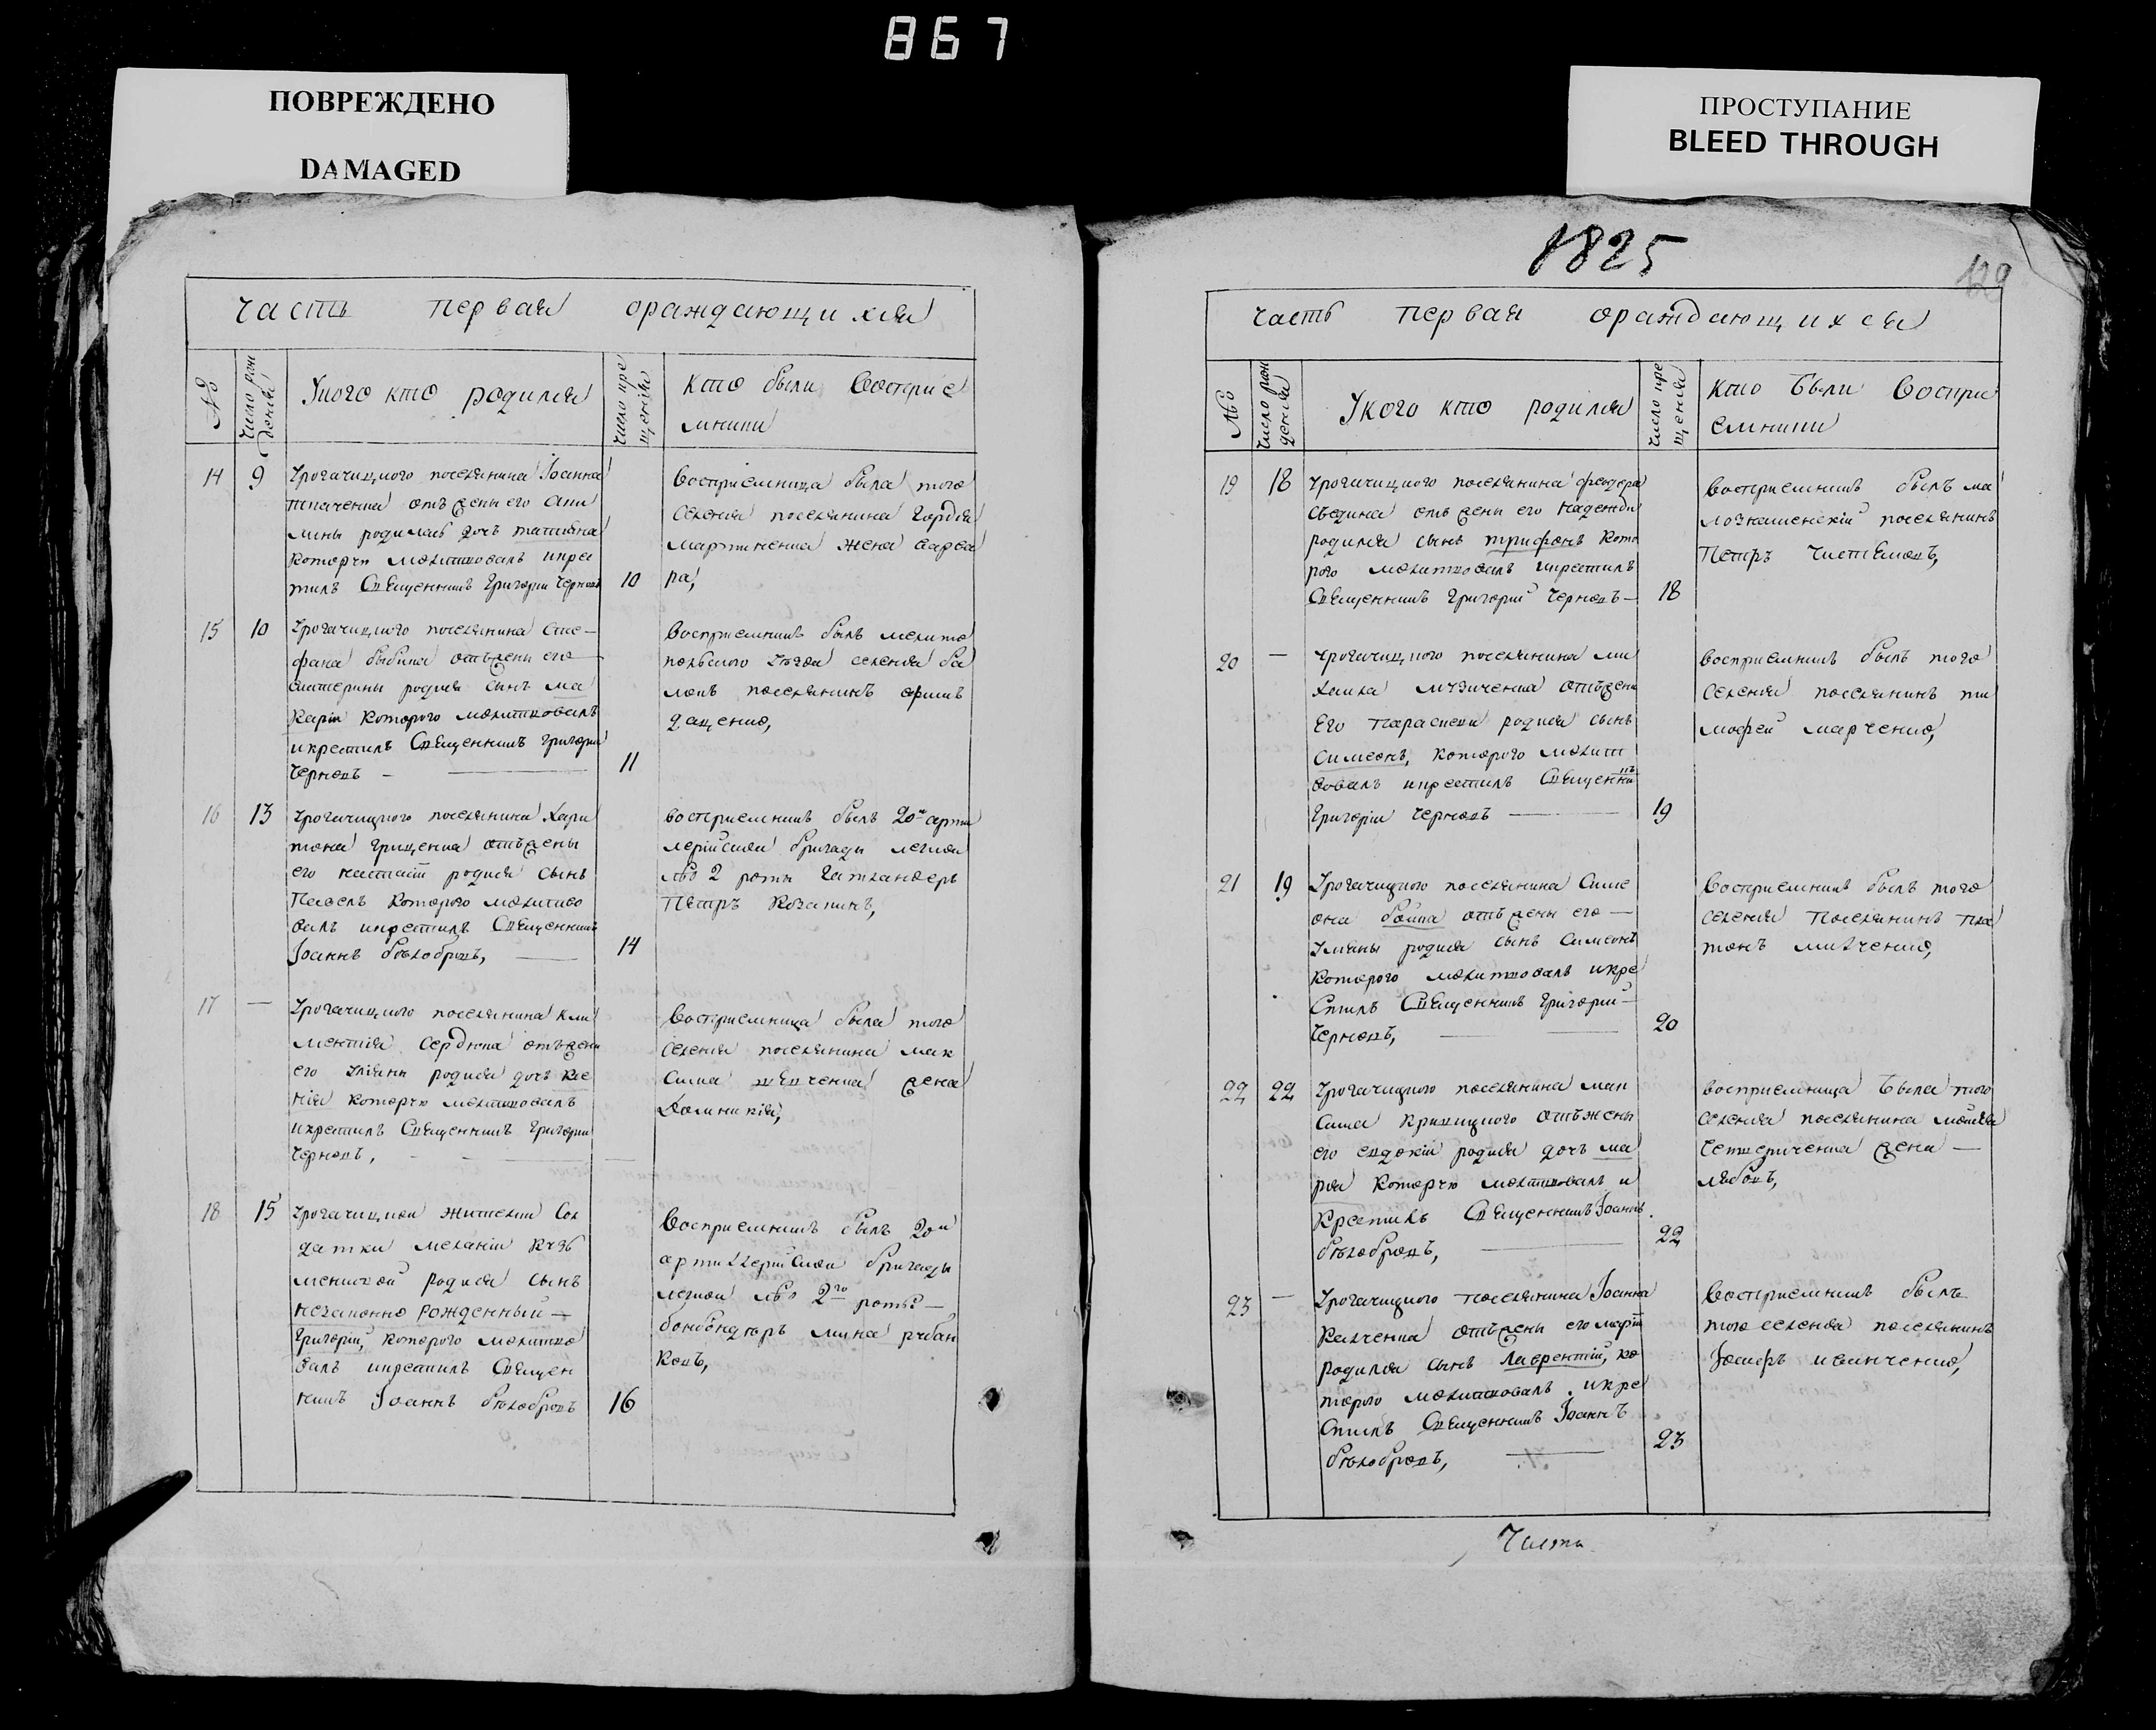 867
ПОВРЕЖДЕНО
DAMAGED
ПРОСТУПАНИЕ
BLEED THROUGH
часть первая ораждающихся
№
число рож
дения
Укого кто родился
число кре
щения
кто были Восприе
мники
14 9
Урогачицкого поселянина Іоанна
Ткаченка отъ жены его Аки
лины родилась дочъ татияна
которую молитвовалъ икрес
тилъ Священникъ Григорий Черновъ 10
Восприемница была того
селения поселянина Гордея
Мартиненка жена варва
ра,
15 10
Урогачицкого поселянина Сте-
фана быбика отъжены его
катерины родился сынъ ма
карий которого молитвовалъ
икрестилъ Священникъ Григорий
Черновъ - 11
Восприемникъ былъ мелито
польского уезда селения ба
локъ поселянинъ ефимъ
даценко,
16 13
Урогачицкого поселянина Хари
тона Грищенка отъжены
его настасии родился сынъ
Павелъ которого молитво
валъ икрестилъ Священникъ
Іоаннъ белобровъ, 14
восприемникъ былъ 20й арти
лерийской бригады легкой
№ 2 роты Гатландеръ
Петръ Козакинъ,
17 —
Урогачицкого поселянина кли
ментия Сердюка отъжены
его улияны родился дочъ ксе
ния которую молитвовалъ
икрестилъ Священникъ Григорий
Черновъ, —
восприемница была того
селения поселянина мак
сима жена
Домникия,
18 15
Урогачицкой жителки Сол
датки мелании
родился сынъ
незаконно рожденный
Григорий, которого молитво
валъ икрестилъ Священ
никъ Іоаннъ белобровъ 16
Восприемникъ былъ 20й
артиллерийской бригады
легкой № 2го роты —
бонбондиръ мина рубан
ковъ,
1825
129
часть первая ораждающихся
№
число рож
дения
Укого кто родился
число кре
щения
кто были Воспри
емники
19 18
Урогачицкого поселянина феодора
Сведина отъ жены его надежды
родился сынъ трифонъ кото
рого молитвовалъ икрестилъ
Священникъ Григорий Черновъ — 18
восприемникъ былъ ма
лознаменский поселянинъ
Петръ Чистяковъ,
20 —
Урогачицкого поселянина ми
хаила отъжены
его параскеви родился сынъ
Симеонъ, которого молит
вовалъ икрестилъ Священникъ
Григорий Черновъ 19
восприемникъ былъ того
селения поселянинъ ти
мофей марченко,
21 19
Урогачицкого поселянина Симе
она бойка отъ жены его —
Улияны родился сынъ Симеонъ
которого молитвовалъ икре
стилъ Священникъ Григорий —
Черновъ, 20
Восприемникъ былъ того
селения Поселянинъ пла
тонъ михченко,
22 22
Урогачицкого поселянина мак
сима Криницкого отъжены
его евдокии родился дочъ ма
рия которую молитвовалъ и
крестилъ Священникъ Іоаннъ
белобровъ, 22
восприемница была того
селения поселянина мойсея
Четвериченка жена —
любовъ,
23 —
Урогачицкого поселянина Іоанна
Калченка отъжены его марии
родился сынъ Лаврентий, ко
торого молитвовалъ икре
стилъ Священникъ Іоаннъ
белобровъ, 23
Восприемникъ былъ
того селения поселянинъ
Іосифъ иванченко,
Часть